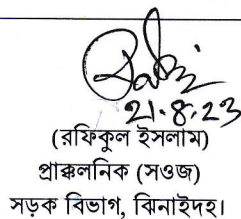 21.8.23
(রফিকুল ইসলাম)
প্রাক্কলনিক (সওজ)
সড়ক বিভাগ, ঝিনাইদহ।